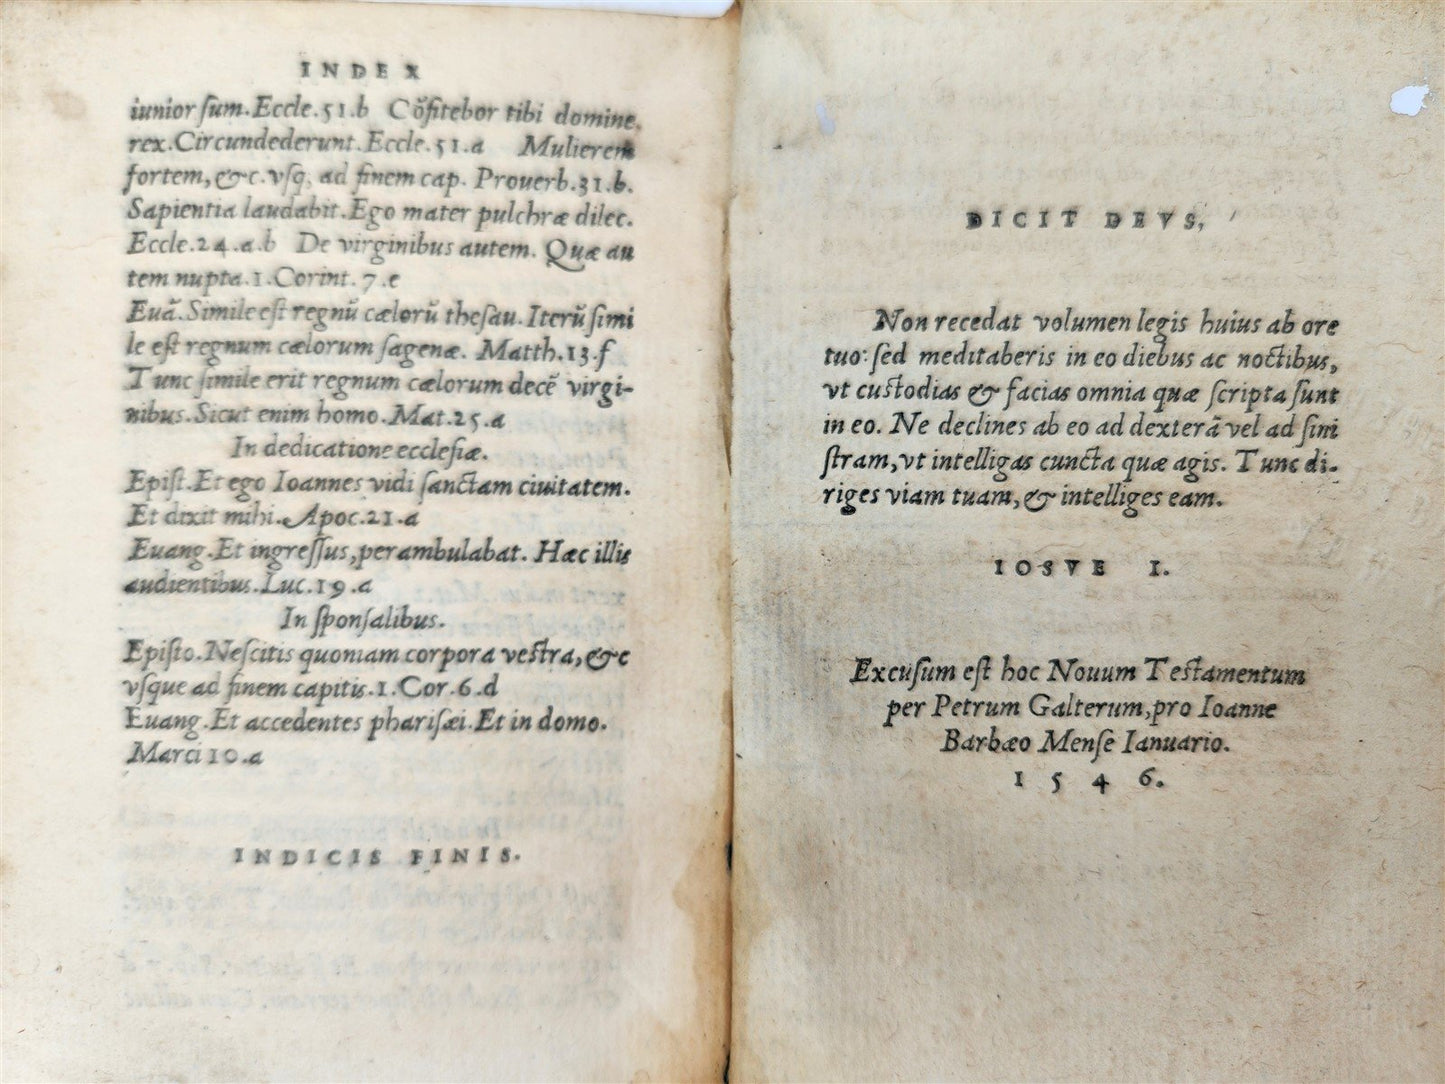 INDEX
iunior ſum. Eccle.51.b Cõfitebor tibi domine
rex. Circundederunt. Eccle.51.a Mulierem
fortem, &c. vſq; ad finem cap. Prouerb.31.b.
Sapientia laudabit. Ego mater pulchræ dilec.
Eccle.24.a.b De virginibus autem. Quæ au
tem nupta.1.Corint.7.e
Euã. Simile eſt regnũ cælorũ theſau. Iterũ ſimi
le eſt regnum cælorum ſagenæ. Matth.13.f
Tunc ſimile erit regnum cælorum decẽ virgi-
nibus. Sicut enim homo. Mat.25.a
In dedicatione eccleſiæ.
Epiſt. Et ego Ioannes vidi ſanctam ciuitatem.
Et dixit mihi. Apoc.21.a
Euang. Et ingreſſus, perambulabat. Hæc illis
audientibus. Luc.19.a
In ſponſalibus.
Epiſto. Neſcitis quoniam corpora veſtra, &c
vſque ad finem capitis.1.Cor.6.d
Euang. Et accedentes phariſæi. Et in domo.
Marci 10.a
INDICIS FINIS.
DICIT DEVS,
Non recedat volumen legis huius ab ore
tuo: ſed meditaberis in eo diebus ac noctibus,
vt cuſtodias & facias omnia quæ ſcripta ſunt
in eo. Ne declines ab eo ad dexterã vel ad ſini
ſtram, vt intelligas cuncta quæ agis. Tunc di-
riges viam tuam, & intelliges eam.
IOSVE I.
Excuſum eſt hoc Nouum Teſtamentum
per Petrum Galterum, pro Ioanne
Barbæo Menſe Ianuario.
1546.